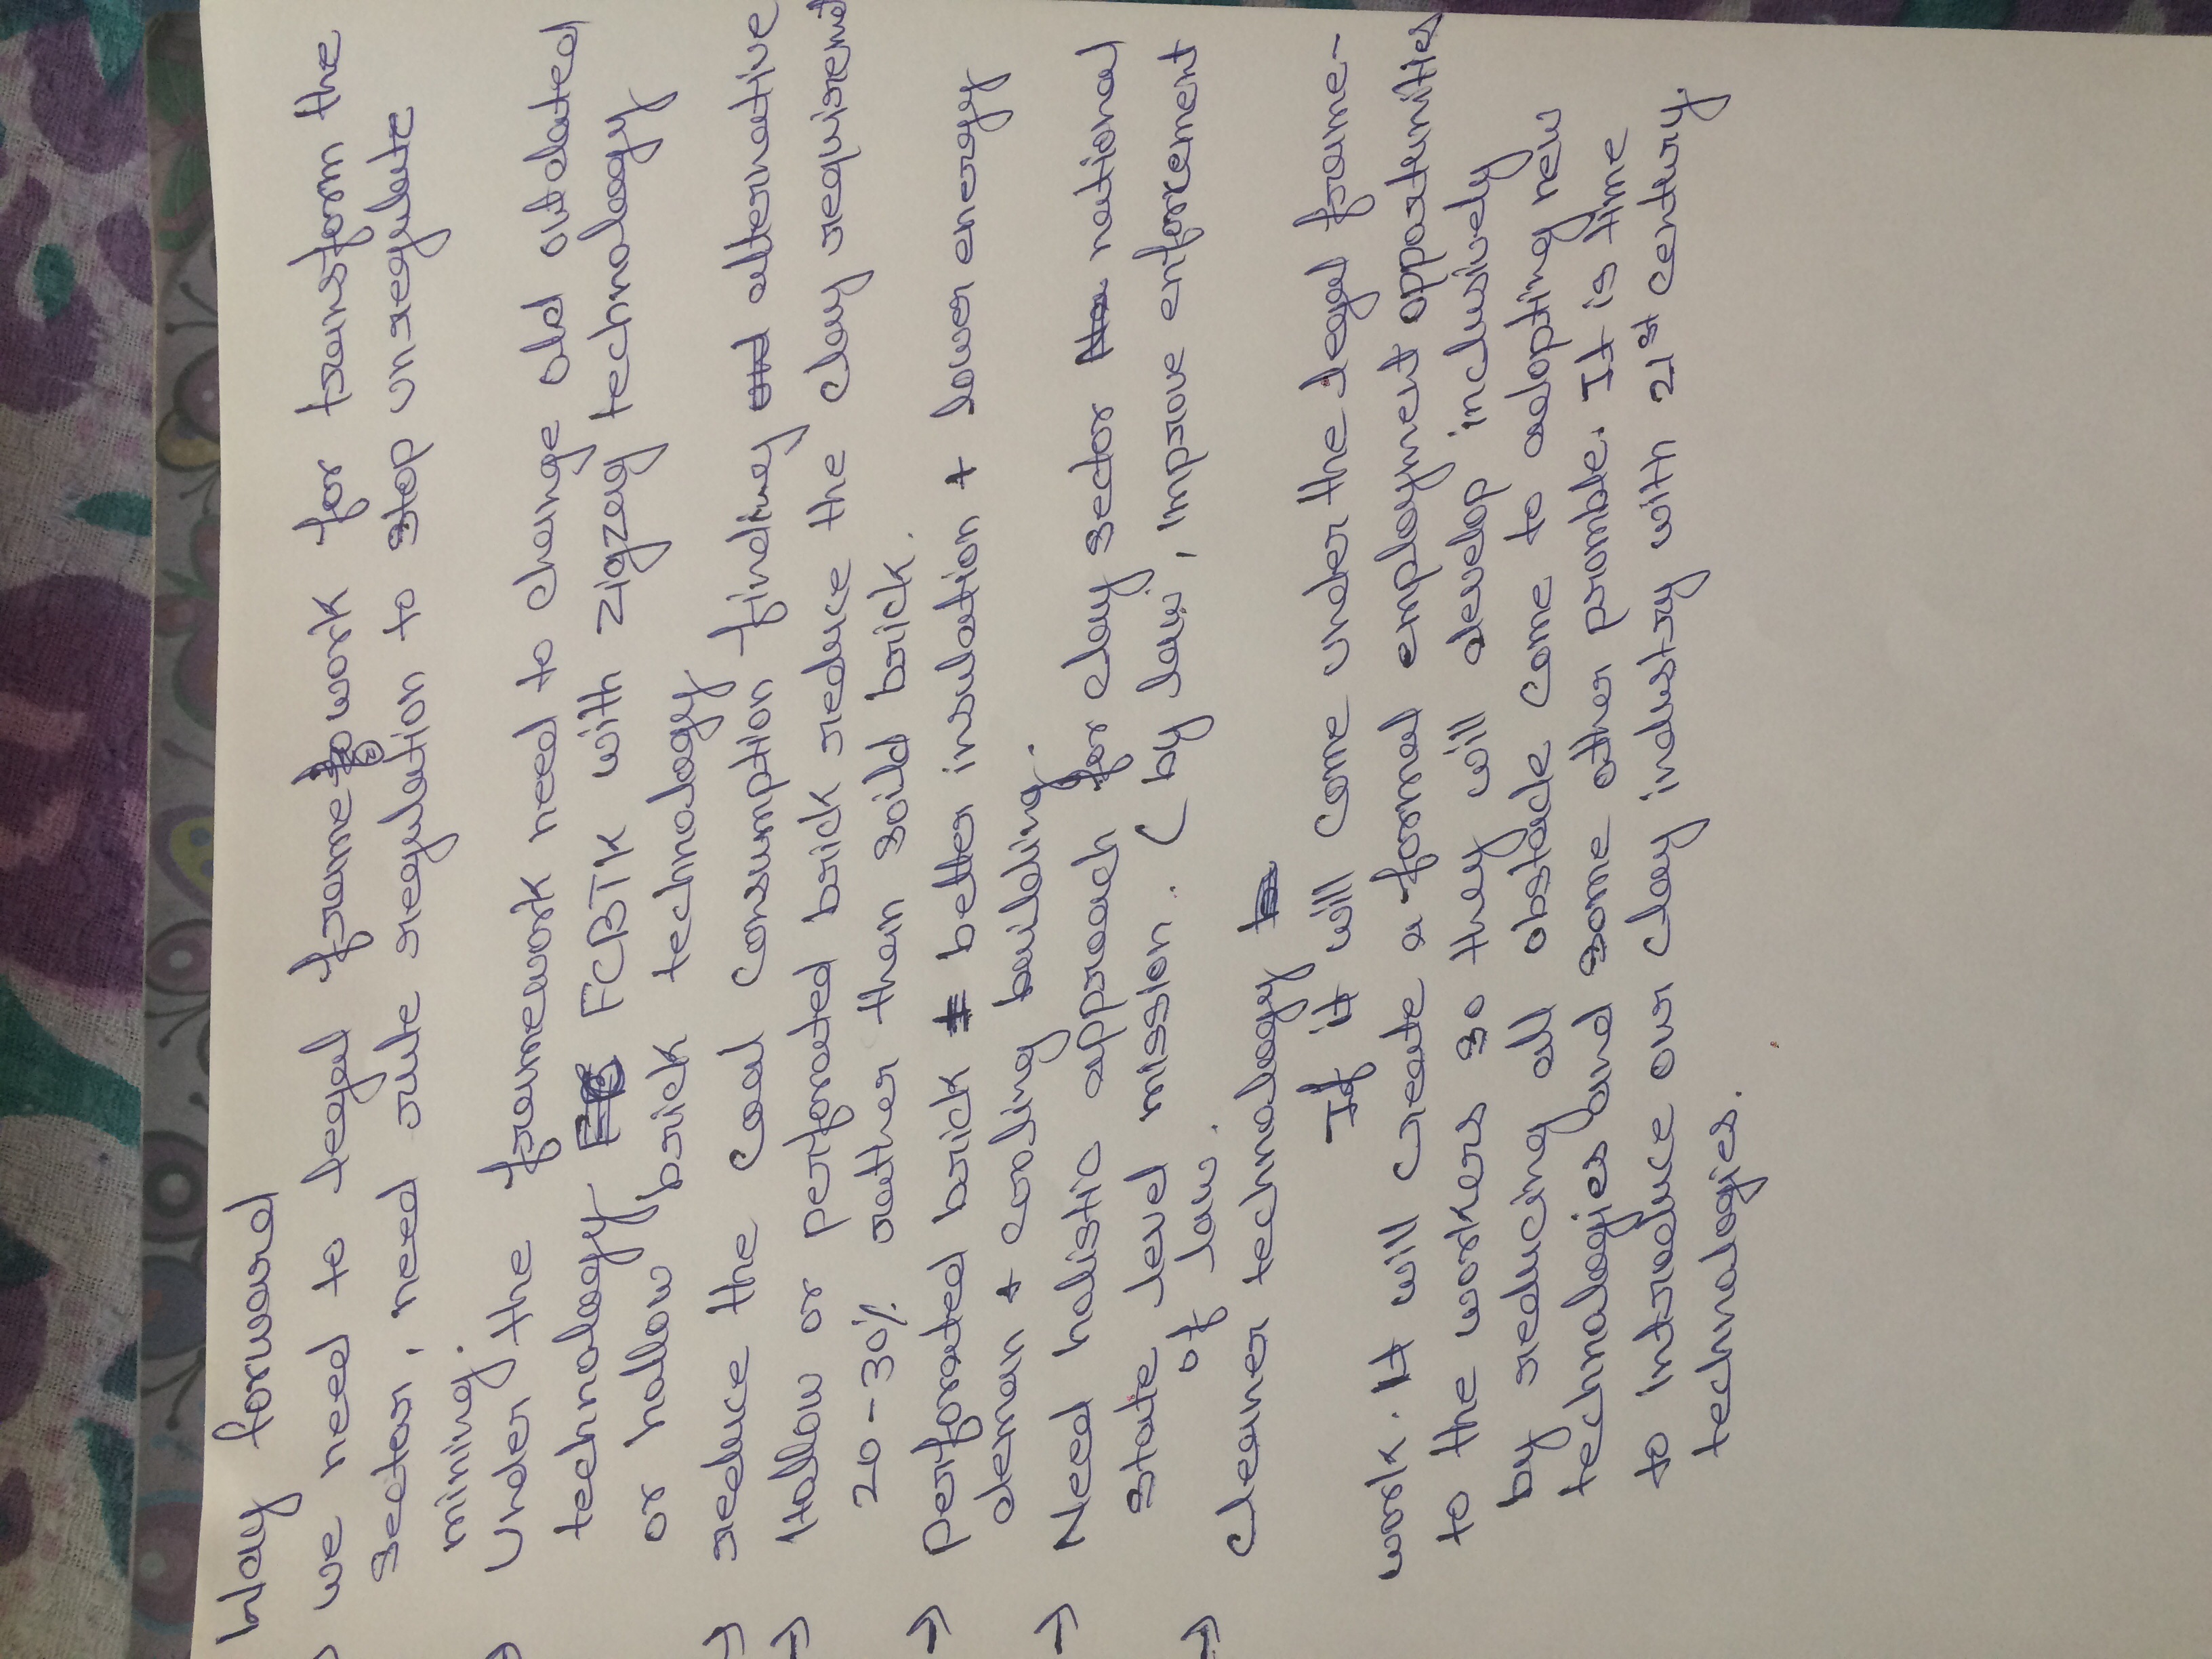 Way forward
→ we need to legal framework for transform the
sector, need rule regulation to stop unregulate
mining.
→ Under the framework need to change old outdated
technology FCBTK with zigzag technology
or hollow brick technology
→ reduce the coal consumption finding alternative
→ Hollow or perforated brick reduce the clay requirement
20-30% rather than soild brick.
→ perforated brick better insulation + lower energy
deman + cooling building.
→ Need holistic approach for clay sector national
state level mission. ( by law, improve enforcement
of law.
→ Cleaner technology
If it will come under the legal frame-
work. It will create a formal employment opportunities
to the workers so they will develop inclusively
by reducing all obstacle come to adopting new
technologies and some other promble. It is time
to introduce our clay industry with 21st century
technologies.